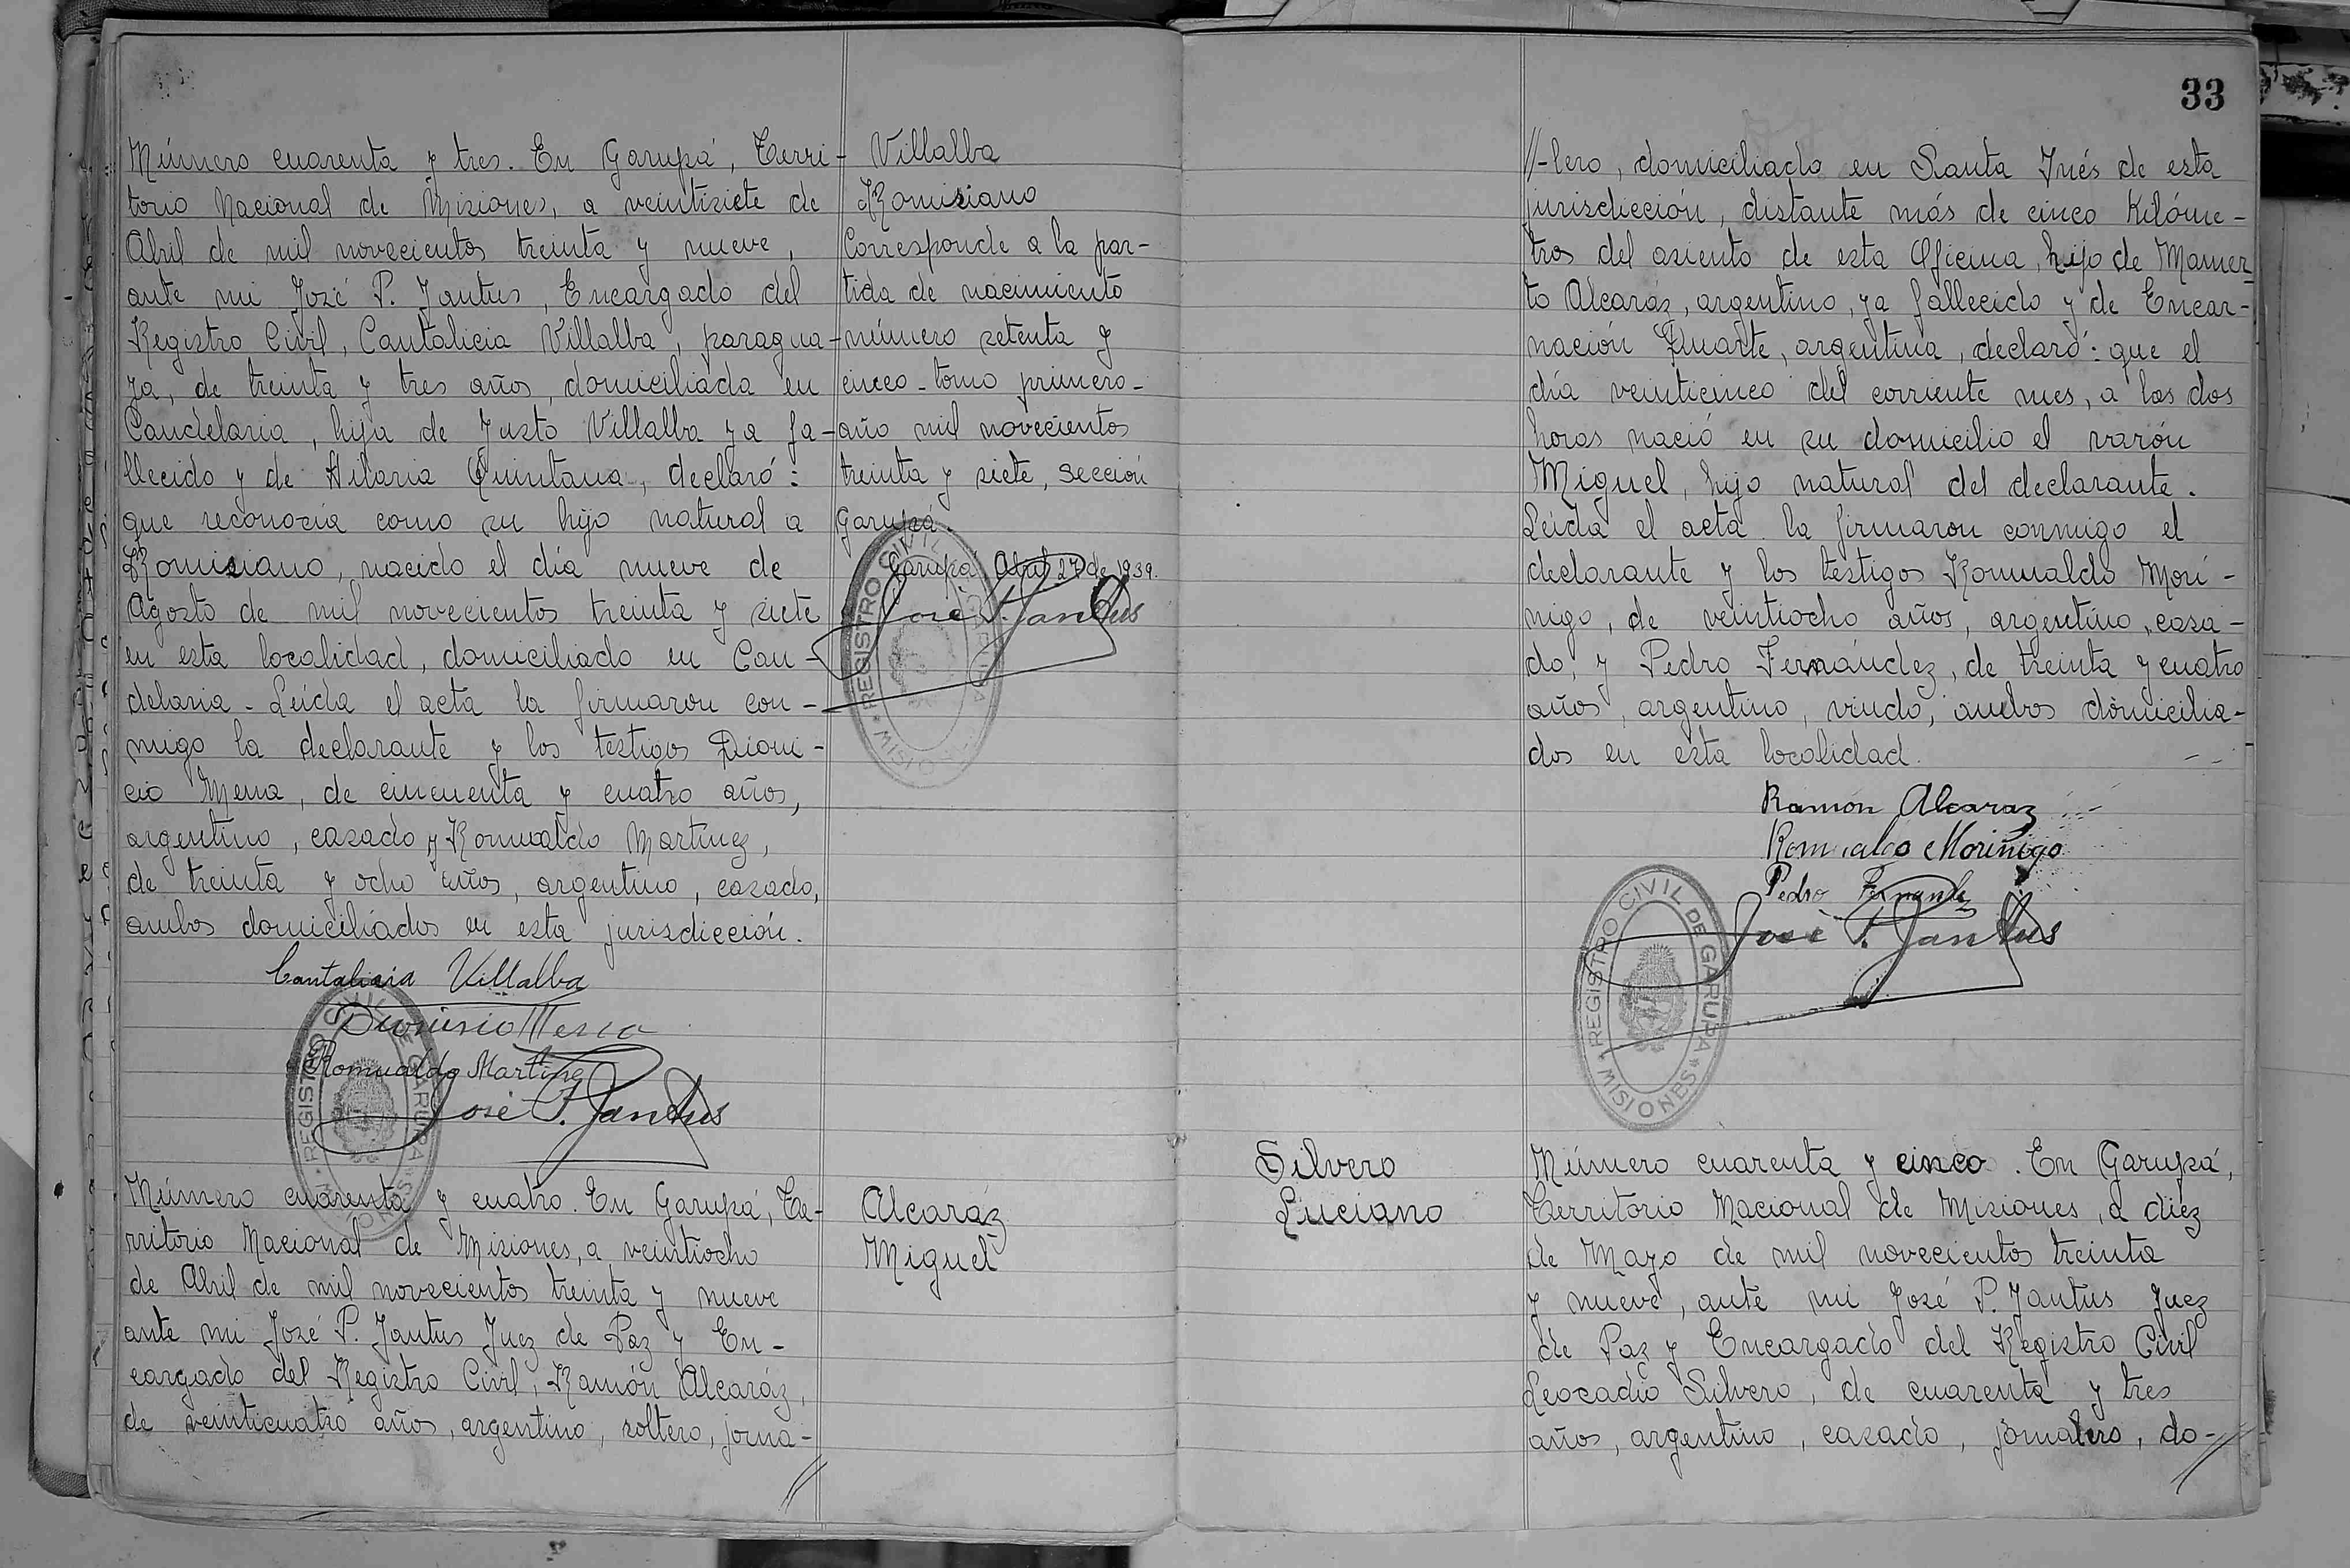 Número cuarenta y tres. En Garupá, Terri-
torio Nacional de Misiones, a veintisiete de
Abril de mil novecientos treinta y nueve,
ante mi José P. Jantus, Encargado del
Registro Civil, Cantalicia Villalba, paragua-
ya, de treinta y tres años, domiciliada en
Candelaria, hija de Justo Villalba ya fa-
llecido y de Hilaria Quintana, declaró:
que reconocía como su hijo natural a
Romisiano, nacido el día nueve de
Agosto de mil novecientos treinta y siete
en esta localidad, domiciliado en Can-
delaria - Leída el acta la firmaron con-
migo la declarante y los testigos Dioni-
cio Mena, de cincuenta y cuatro años,
argentino, casado y Romualdo Martínez,
de treinta y ocho años, argentino, casado,
ambos domiciliados en esta jurisdicción.
Cantalicia Villalba
Dionisio Mena
Romualdo Martine
José P. Jantus
REGISTRO CIVIL DE GARUPA
MISIONES
Villalba
Romisiano
Corresponde a la par-
tida de nacimiento
número setenta y
cinco - tomo primero -
año mil novecientos
treinta y siete, sección
Garupá.
Garupá, Abril 27 de 1939.
José P. Jantus
REGISTRO CIVIL DE GARUPA
MISIONES
Número cuarenta y cuatro. En Garupá, Te-
rritorio Nacional de Misiones, a veintiocho
de Abril de mil novecientos treinta y nueve
ante mi José P. Jantus Juez de Paz y En-
cargado del Registro Civil, Ramón Alcaráz,
de veinticuatro años, argentino, soltero, jorna-
//
Alcaráz
Miguel
33
//-lero, domiciliado en Santa Inés de esta
jurisdicción, distante más de cinco Kilóme-
tros del asiento de esta Oficina, hijo de Mamer
to Alcaráz, argentino, ya fallecido y de Encar-
nación Duarte, argentina, declaró: que el
día veinticinco del corriente mes, a las dos
horas nació en su domicilio el varón
Miguel, hijo natural del declarante.
Leída el acta la firmaron conmigo el
declarante y los testigos Romualdo Morí-
nigo, de veintiocho años, argentino, casa-
do, y Pedro Fernández, de treinta y cuatro
años, argentino, viudo, ambos domicilia-
dos en esta localidad. - -
Ramón Alcaraz
Romualdo Moriñigo
Pedro Fernandez
José P. Jantus
REGISTRO CIVIL DE GARUPA
MISIONES
Silvero
Luciano
Número cuarenta y cinco. En Garupá,
Territorio Nacional de Misiones, a diez
de Mayo de mil novecientos treinta
y nueve, ante mi José P. Jantus Juez
de Paz y Encargado del Registro Civil
Leocadio Silvero, de cuarenta y tres
años, argentino, casado, jornalero, do-
//